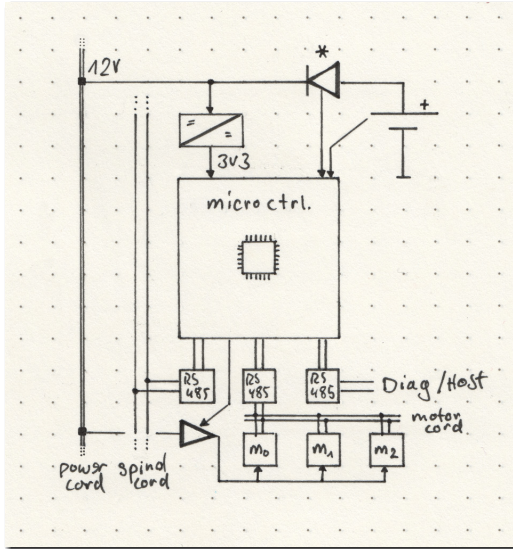 *
12V
+
=
=
3V3
micro ctrl.
RS
485
RS
485
RS
485
Diag/Host
motor
cord
m0
m1
m2
power
cord
spinal
cord